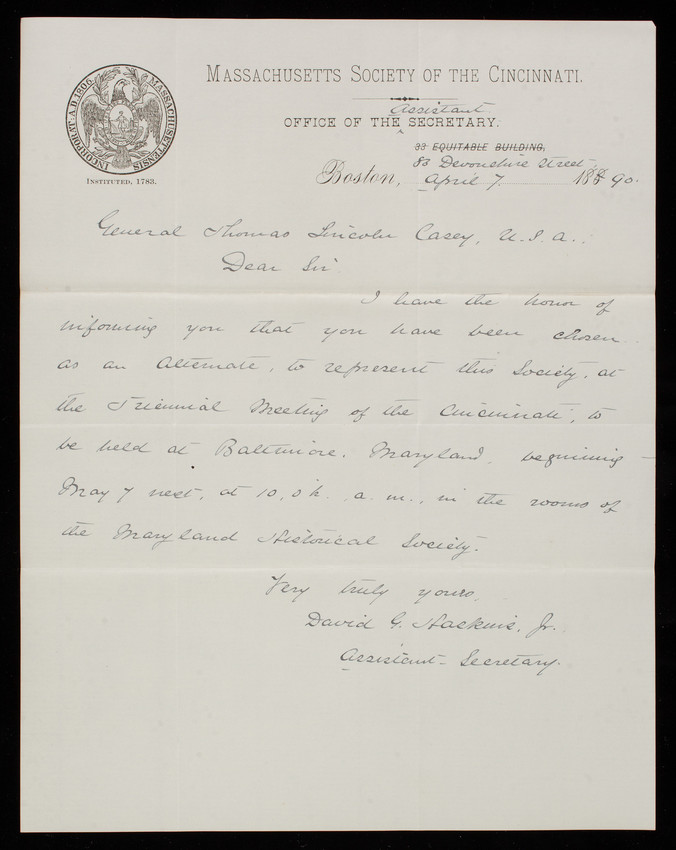 INCORPORAT. A.D. 1806 MASSACHUSETTENSIS
INSTITUTED, 1783.
MASSACHUSETTS SOCIETY OF THE CINCINNATI.
Assistant
OFFICE OF THE SECRETARY.
33 EQUITABLE BUILDING,
83 Devonshire Street,
Boston, April 7. 1890.
General Thomas Lincoln Casey, U.S.A.,
Dear Sir
I have the honor of
informing you that you have been chosen
as an Alternate, to represent this Society, at
the Triennial Meeting of the Cincinnati, to
be held at Baltimore, Maryland, beginning
May 7 next, at 10, o'k. a.m., in the rooms of
the Maryland Historical Society.
Very truly yours,
David G. Haskins, Jr.
Assistant Secretary.